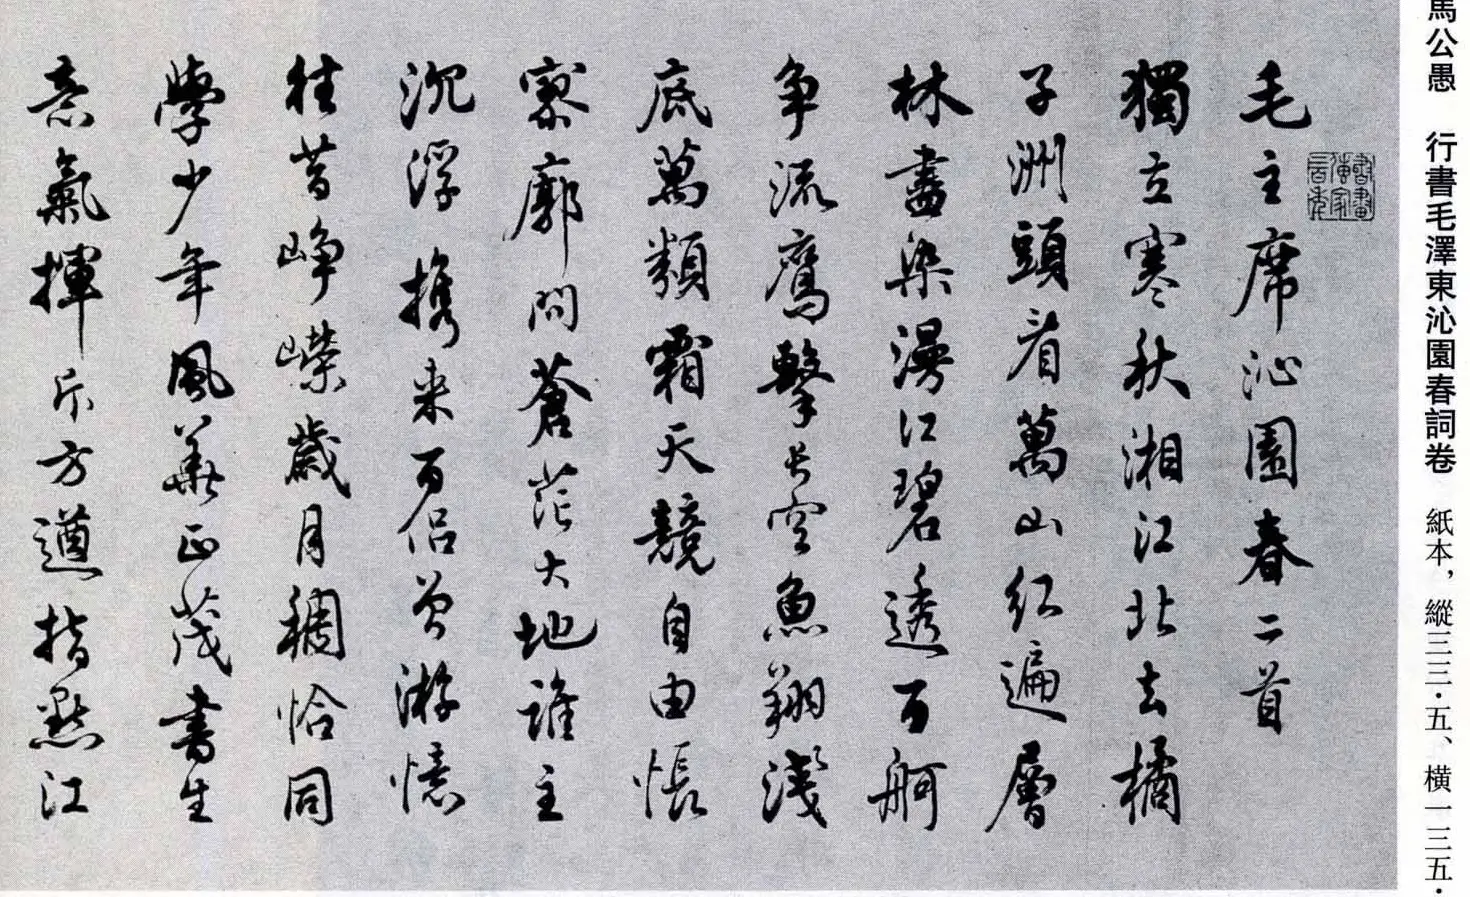 馬公愚 行書毛澤東沁園春詞卷 紙本，縱三三·五、橫一三五·
毛主席沁園春二首
獨立寒秋湘江北去橘
子洲頭看萬山紅遍層
林盡染漫江碧透百舸
争流鷹擊長空魚翔淺
底萬類霜天競自由悵
寥廓問蒼茫大地誰主
沉浮携来百侣曾游憶
往昔崢嶸歲月稠恰同
學少年風華正茂書生
意氣揮斥方遒指點江